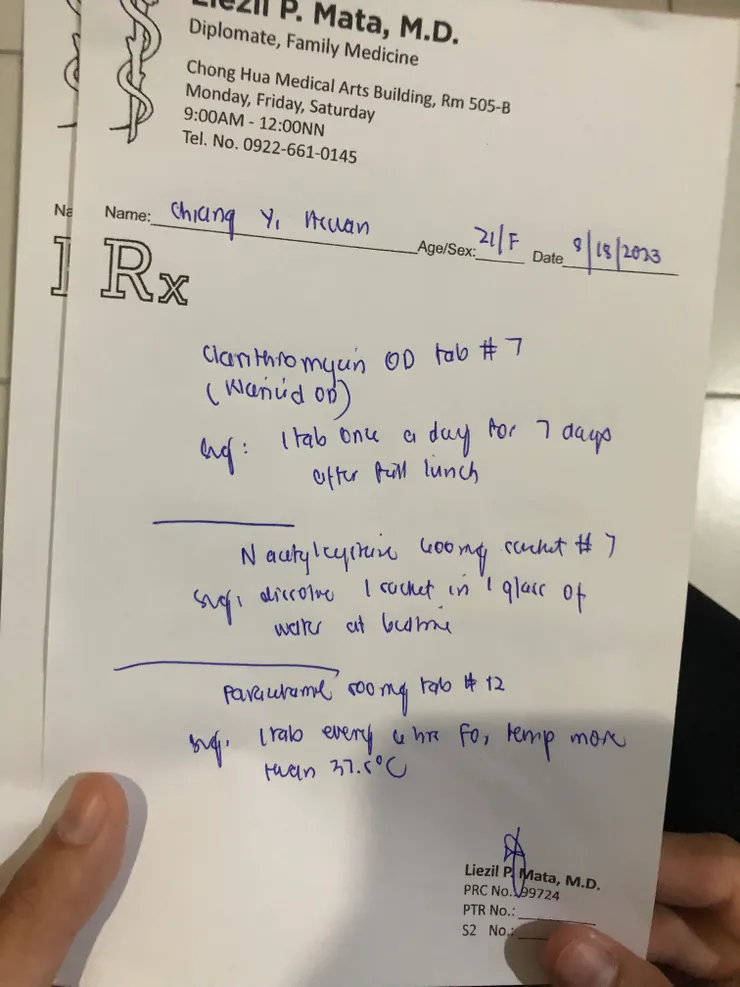 Liezil P. Mata, M.D.
Diplomate, Family Medicine
Chong Hua Medical Arts Building, Rm 505-B
Monday, Friday, Saturday
9:00AM - 12:00NN
Tel. No. 0922-661-0145
Na
Name: Chiang Yi Hsuan Age/Sex: 21/F Date 8/18/2023
Rx
Clarithromycin OD tab # 7
(Klaricid OD)
Sig: 1 tab once a day for 7 days
after full lunch
N acetylcysteine 600mg sachet # 7
Sig: dissolve 1 sachet in 1 glass of
water at bedtime
Paracetamol 500mg tab # 12
Sig: 1 tab every 4 hrs for temp more
than 37.5°C
Liezil P. Mata, M.D.
PRC No.: 99724
PTR No.:
S2 No.: